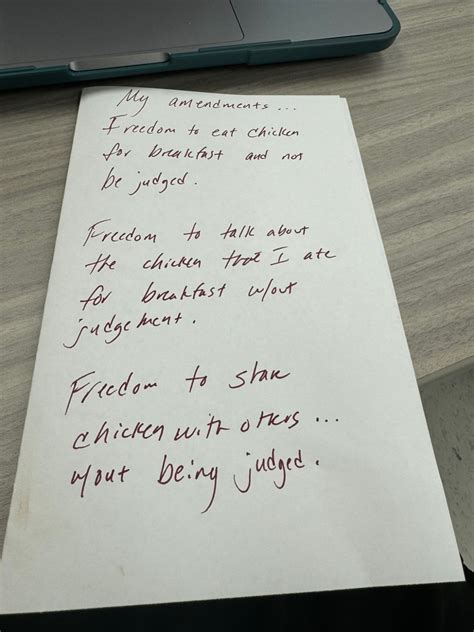 My amendments...
Freedom to eat chicken
for breakfast and not
be judged.
Freedom to talk about
the chicken that I ate
for breakfast w/out
judgement.
Freedom to share
chicken with others...
w/out being judged.